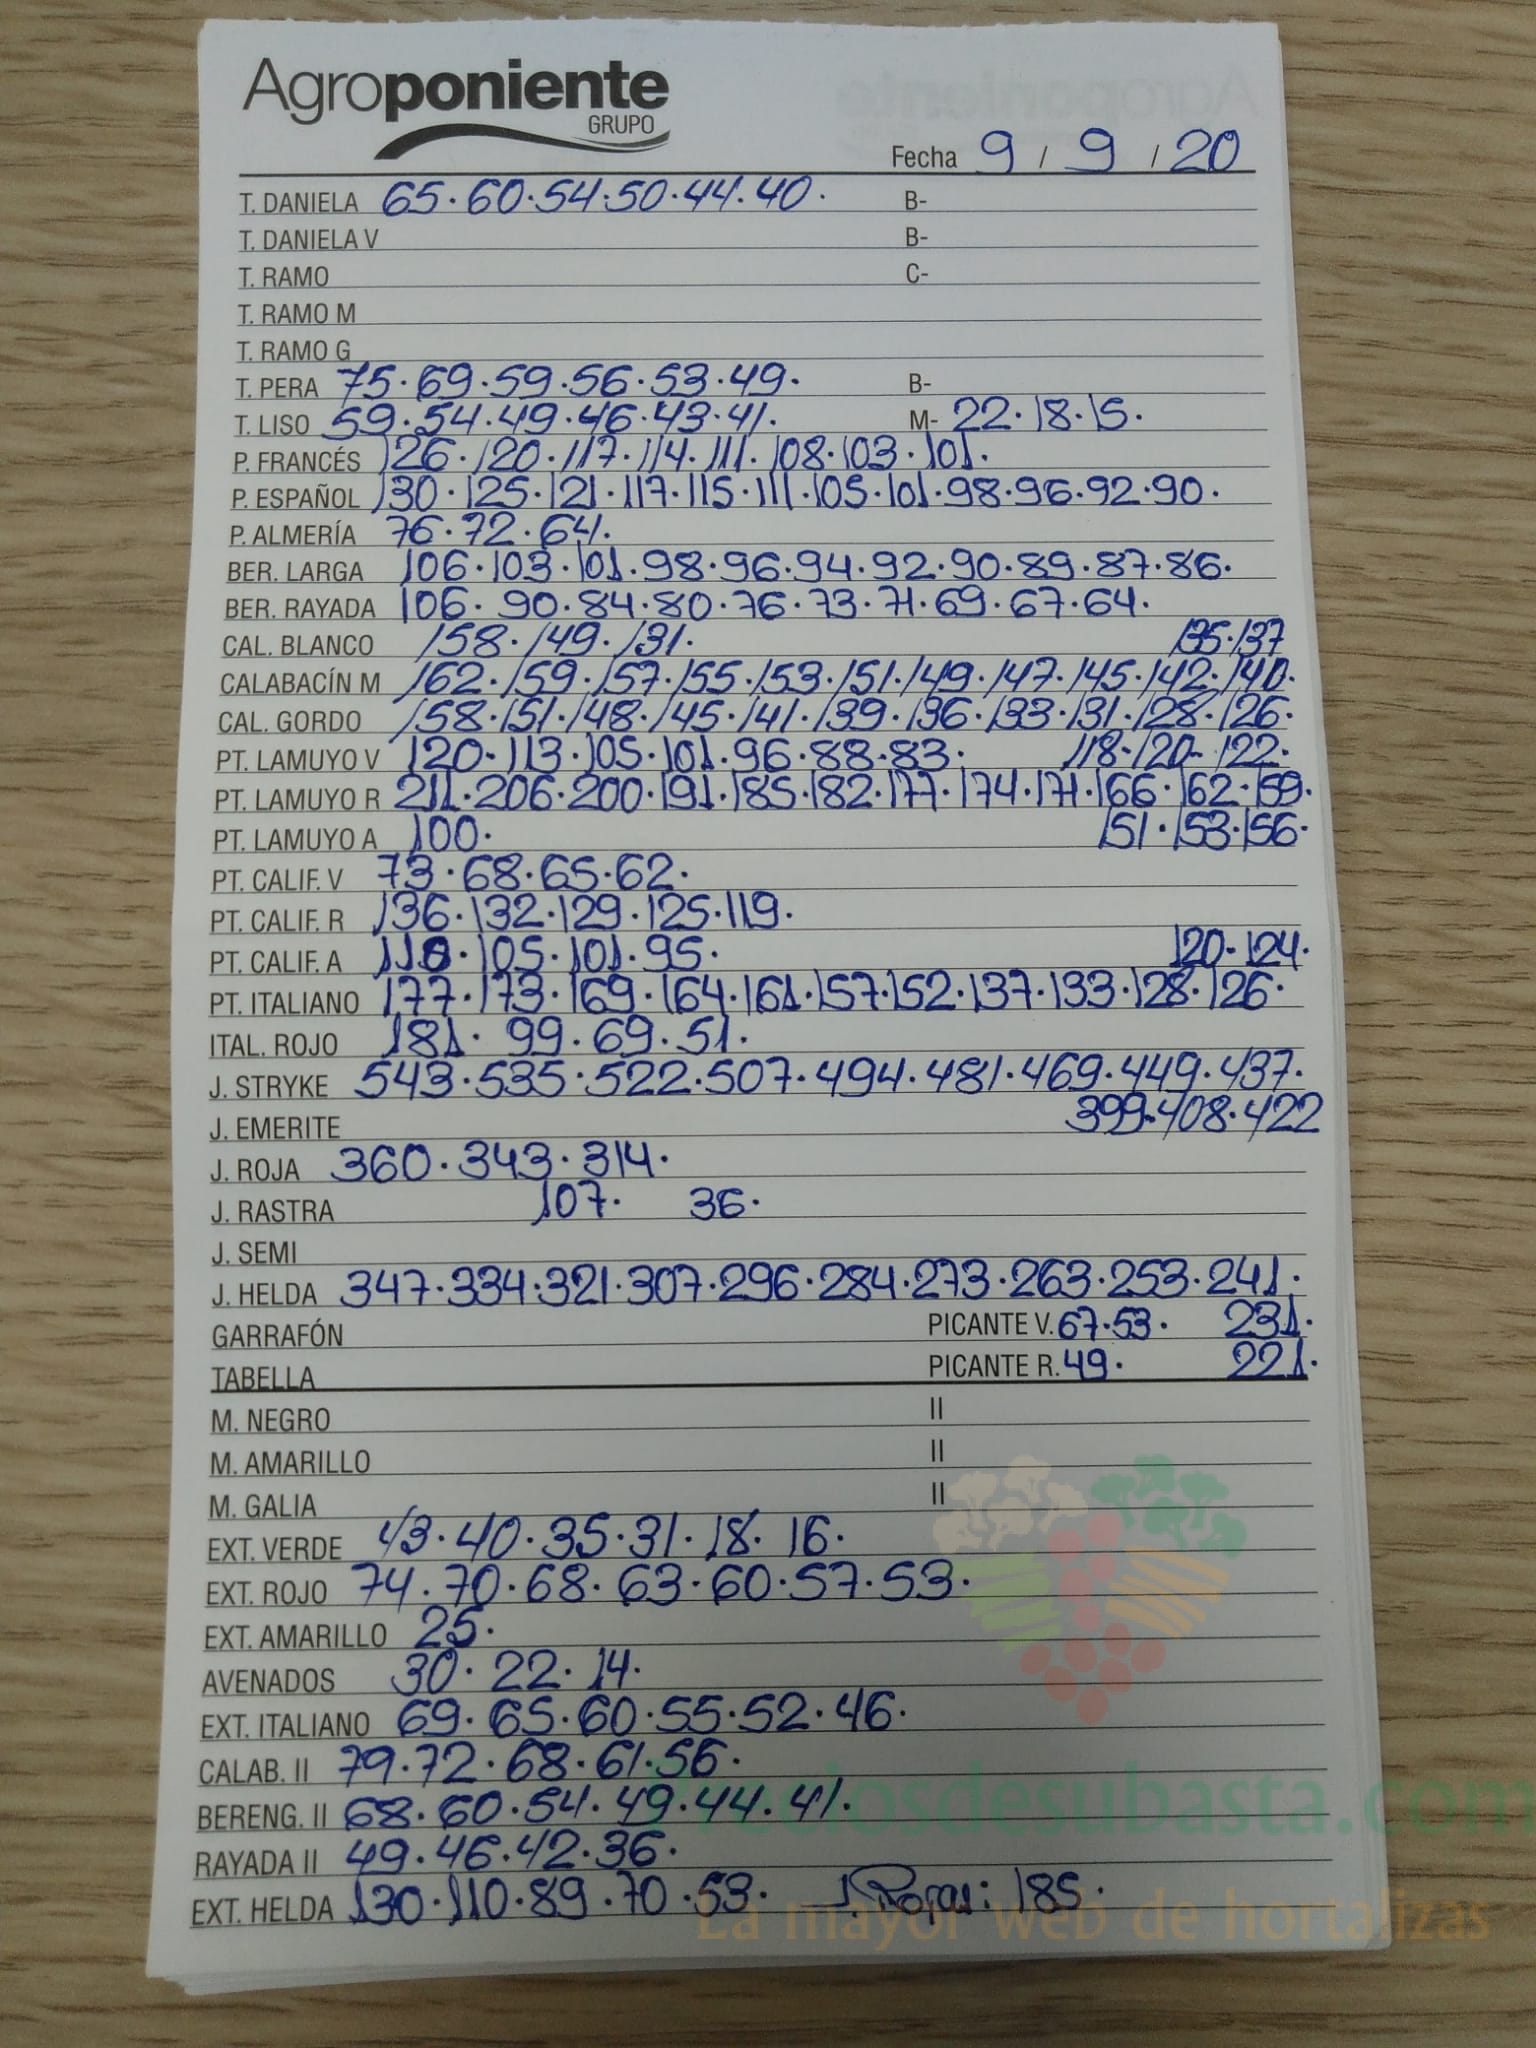 Agroponiente
GRUPO
Fecha 9 / 9 / 20
T. DANIELA 65·60·54·50·44·40· B-
T. DANIELA V B-
T. RAMO C-
T. RAMO M
T. RAMO G
T. PERA 75·69·59·56·53·49· B-
T. LISO 59·54·49·46·43·41· M- 22·18·15·
P. FRANCÉS 126·120·117·114·111·108·103·101·
P. ESPAÑOL 130·125·121·117·115·111·105·101·98·96·92·90·
P. ALMERÍA 76·72·64·
BER. LARGA 106·103·101·98·96·94·92·90·89·87·86·
BER. RAYADA 106·90·84·80·76·73·71·69·67·64·
CAL. BLANCO 158·149·131· 135·137
CALABACÍN M 162·159·157·155·153·151·149·147·145·142·140·
CAL. GORDO 158·151·148·145·141·139·136·133·131·128·126·
PT. LAMUYO V 120·113·105·101·96·88·83· 118·120·122·
PT. LAMUYO R 211·206·200·191·185·182·177·174·171·166·162·159·
PT. LAMUYO A 100· 151·153·156·
PT. CALIF. V 73·68·65·62·
PT. CALIF. R 136·132·129·125·119·
PT. CALIF. A 110·105·101·95· 120·124·
PT. ITALIANO 177·173·169·164·161·157·152·137·133·128·126·
ITAL. ROJO 181·99·69·51·
J. STRYKE 543·535·522·507·494·481·469·449·437·
J. EMERITE 399·408·422
J. ROJA 360·343·314·
J. RASTRA 107· 36·
J. SEMI
J. HELDA 347·334·321·307·296·284·273·263·253·241·
GARRAFÓN PICANTE V. 67·53· 231·
TABELLA PICANTE R. 49· 221·
M. NEGRO II
M. AMARILLO II
M. GALIA II
EXT. VERDE 43·40·35·31·18·16·
EXT. ROJO 74·70·68·63·60·57·53·
EXT. AMARILLO 25·
AVENADOS 30·22·14·
EXT. ITALIANO 69·65·60·55·52·46·
CALAB. II 79·72·68·61·56·
BERENG. II 68·60·54·49·44·41·
RAYADA II 49·46·42·36·
EXT. HELDA 130·110·89·70·53· J. Rojas: 185·
Preciosdesubasta.com
La mayor web de hortalizas